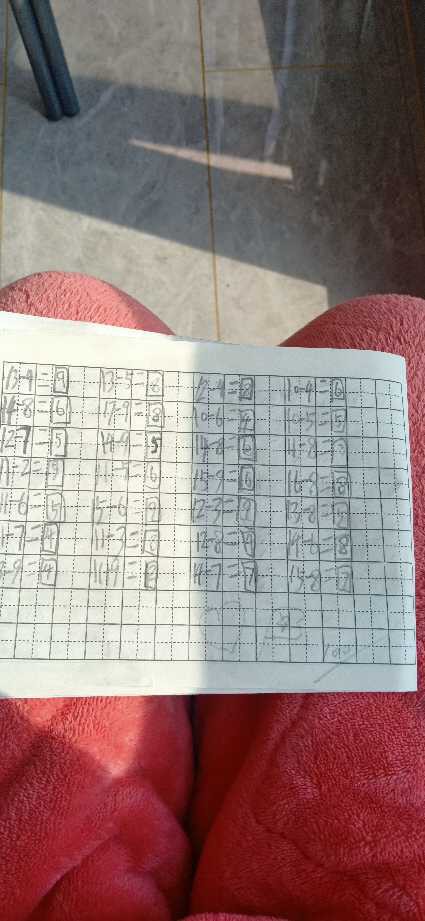 13-4=9 13-5=8 12-4=8 10-4=6
14-8=6 17-9=8 10-6=4 10-5=5
12-7=5 14-9=5 14-8=6 11-8=3
11-2=9 11-5=6 15-9=6 16-8=8
11-6=5 15-6=9 12-3=9
11-7=4 11-3=8 14-6=8
11-9=2 14-7=7 15-8=7